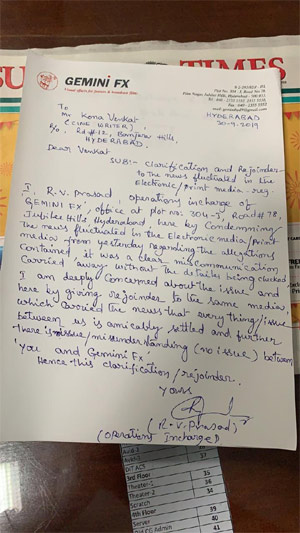 SU
TIMES
GEMINI FX
Plot No. 304 - J, Road No. 78
Film Nagar, Jubilee Hills, Hyderabad - 500 033
HYDERABAD
30-9-2019
To
Mr Kona Venkat
(CINE WRITER)
R/o, Rd #12, Banjara Hills,
HYDERABAD.
Dear Venkat
SUB:- Clarification and Rejoinder
to the news fluctuated in the
Electronic/Print media - reg.
I, R.V. prasad, operations incharge of
GEMINI FX', office at plot no. 304-J, Road #78,
Jubilee Hills Hyderabad here by Condemning
The news fluctuated in the Electronic media/print
media from yesterday regarding the allegations
Contained it was a clean miscommunication
Carried away without the details being clicked
I am deeply concerned about the issue and
here by giving rejoinder to the same medias,
which carried the news that every thing/issue
between us is amicably settled and further
There is no issue/misunderstanding (no issue) between
'You and Gemini Fx'.
Hence this clarification/rejoinder.
Yours
(R.V. Prasad)
(Operations Incharge)
Avid 3
Audio
DIT ACS
3rd Floor 35
Theater-1 36
Theater-2 34
Scratch
4th Floor 39
Server 40
Admin 41